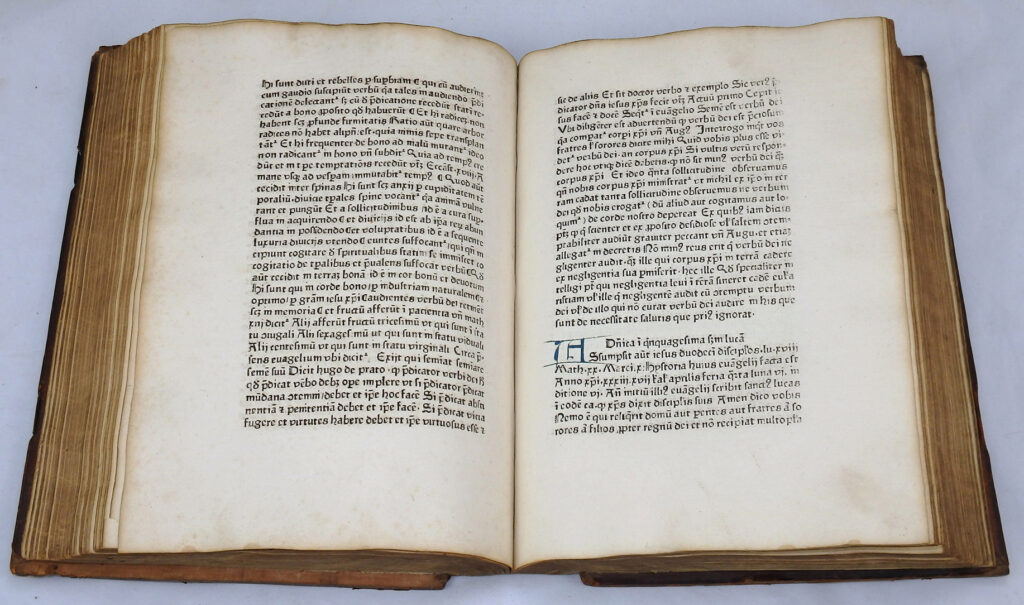 Hi sunt duri et rebelles ꝑ suꝑbiam ¶ qui cū audierint
cum gaudio suscipiūt verbū qꝛ tales in audiendo p̄di
catione delectantᷣ sꝫ cū ō p̄dicatione recedūt statī re
cedūt a bono ꝓposito qd̄ habuerūt ¶ Et hi radicē non
habent scꝫ ꝓfunde firmitatis Ratio aūt quare arbor
radices nō habet aliqn̄ est quia nimis sepe transplan
tatᷣ Et hi frequenter de bono ad malū murantᷣ ideo
non radicantᷣ in bono vn̄ subditᷣ Quia ad tempꝰ cre
dūt et in tꝑe temptationis recedūt vn̄ Eccāst xvij A
mane vsqꝫ ad vesperam immutabitᷣ tempꝰ ¶ Quod aūt
cecidit inter spinas Hi sunt scꝫ anxij ꝑ cupiditatem tē
poraliū diuicie tꝑales spine vocantᷣ qꝛ animā vulne
rant et pungūt Et a sollicitudinibus id ē a cura sup
flua in acquirendo ¶ et diuicijs id est ab ipa rerꝫ abun
dantia in possidendo ¶ et voluptatibus id ē a sequente
luxuria diuicijs vtendo ¶ euntes suffocantᷣ qui qn̄ in
cipiunt cogitare ō spiritualibus statim se immiscet
cogitatio de tꝑalibus et p̄ualens suffocat verbū ¶ Qd̄
aūt cecidit in terrā bonā id ē in cor bonū et deuotum
Hi sunt qui in corde bono ꝑ industriam naturalem ¶
optimo ꝑ grām iesu xp̄i ¶ audientes verbū dei retinēt
scꝫ in memoria ¶ et fructū afferūt ī pacientia vn̄ math
xiij dicitᷣ Alij afferūt fructū tricesimū vt qui sunt ī sta
tu ɔiugali Alij sexagesimū vt qui sunt in statu viduali
Alij centesimū vt qui sunt in statu virginali Circa p̄
sens euāgelium vbi dicitᷣ Exijt qui semiat semiare
semē suū Dicit hugo de prato qꝫ p̄dicator verbi dei
qd̄ p̄dicat verbo debꝫ ope implere vt si p̄dicator p̄dicat
mūdana ɔtemni debet et ipe hoc facē Si p̄dicat absti
nentiā ⁊ penitentiā debet et ipe facē Si p̄dicat vicia
fugere et virtutes habere debet et ipe virtuosus esse ⁊
sic de alijs Et sit doctor verbo ⁊ exemplo Sic verꝰ p̄
dicator dn̄s iesus xp̄s fecit vn̄ Actuū primo Cepit ie
sus facē ⁊ docē Seqtᷣ ī euāgelio Semē est verbū dei
Vbi diligēter est aduertendū qꝫ verbū dei est p̄ciosum
qꝛ compatᷣ corpi xp̄i vn̄ Augꝰ Interrogo vos
fratres ł sorores dicite mihi Quid vobis plus esse vi
detᷣ verbū dei an corpus xp̄i Si vultis verū respon
dere hoc vtiqꝫ dicē debetis qꝫ nō sit minꝰ verbū dei qꝫ
corpus xp̄i Et ideo qn̄ta sollicitudine obseruamus
qn̄ nobis corpus xp̄i ministratᷣ vt nichil ex ipo in ter
ram cadat tanta sollicitudine obseruemus ne verbum
dei qd̄ nobis erogatᷣ dū aliud aut cogitamus aut lo
quimᷣ de corde nostro depereat Ex quibꝰ iam dictis
ptꝫ qꝫ qui scienter et ex ꝓposito desidiose vł saltem ɔtem
ptabiliter audiūt grauiter peccant vn̄ Augu et etiaꝫ
allegatᷣ in decretis Nō minꝰ reus erit qui verbū dei ne
gligenter audit qꝫ ille qui corpus xp̄i in terrā cadere
ex negligentia sua ꝑmiserit hec ille Qd̄ specialiter in
relligi pt̄ qui negligentia leui ī terrā sineret cadē euka
ristiam vł ille qui negligente audit cū ɔtemptu verbum
dei vł de illo qui nō curat verbū dei audire in his que
sunt de necessitate salutis que priꝰ ignorat
Dn̄ica ī qn̄quagesima scm̄ lucā
ASsumpsit aūt iesus duodecī disciplos lu xviij
Math xx Marci x Hystoria huius euāgelij facta est
Anno xp̄i xxxiij xvij kal aprilis feria qrta luna vj in
ditione vj An̄ initiū illiꝰ euāgelij scribit sanctꝰ lucas
ī codē ca qꝫ xp̄s dixit disciplis suis Amen dico vobis
Nemo ē qui reliqrit domū aut pentes aut fratres ā so
rores ā filios ꝓpter regnū dei et nō recipiat multo pła